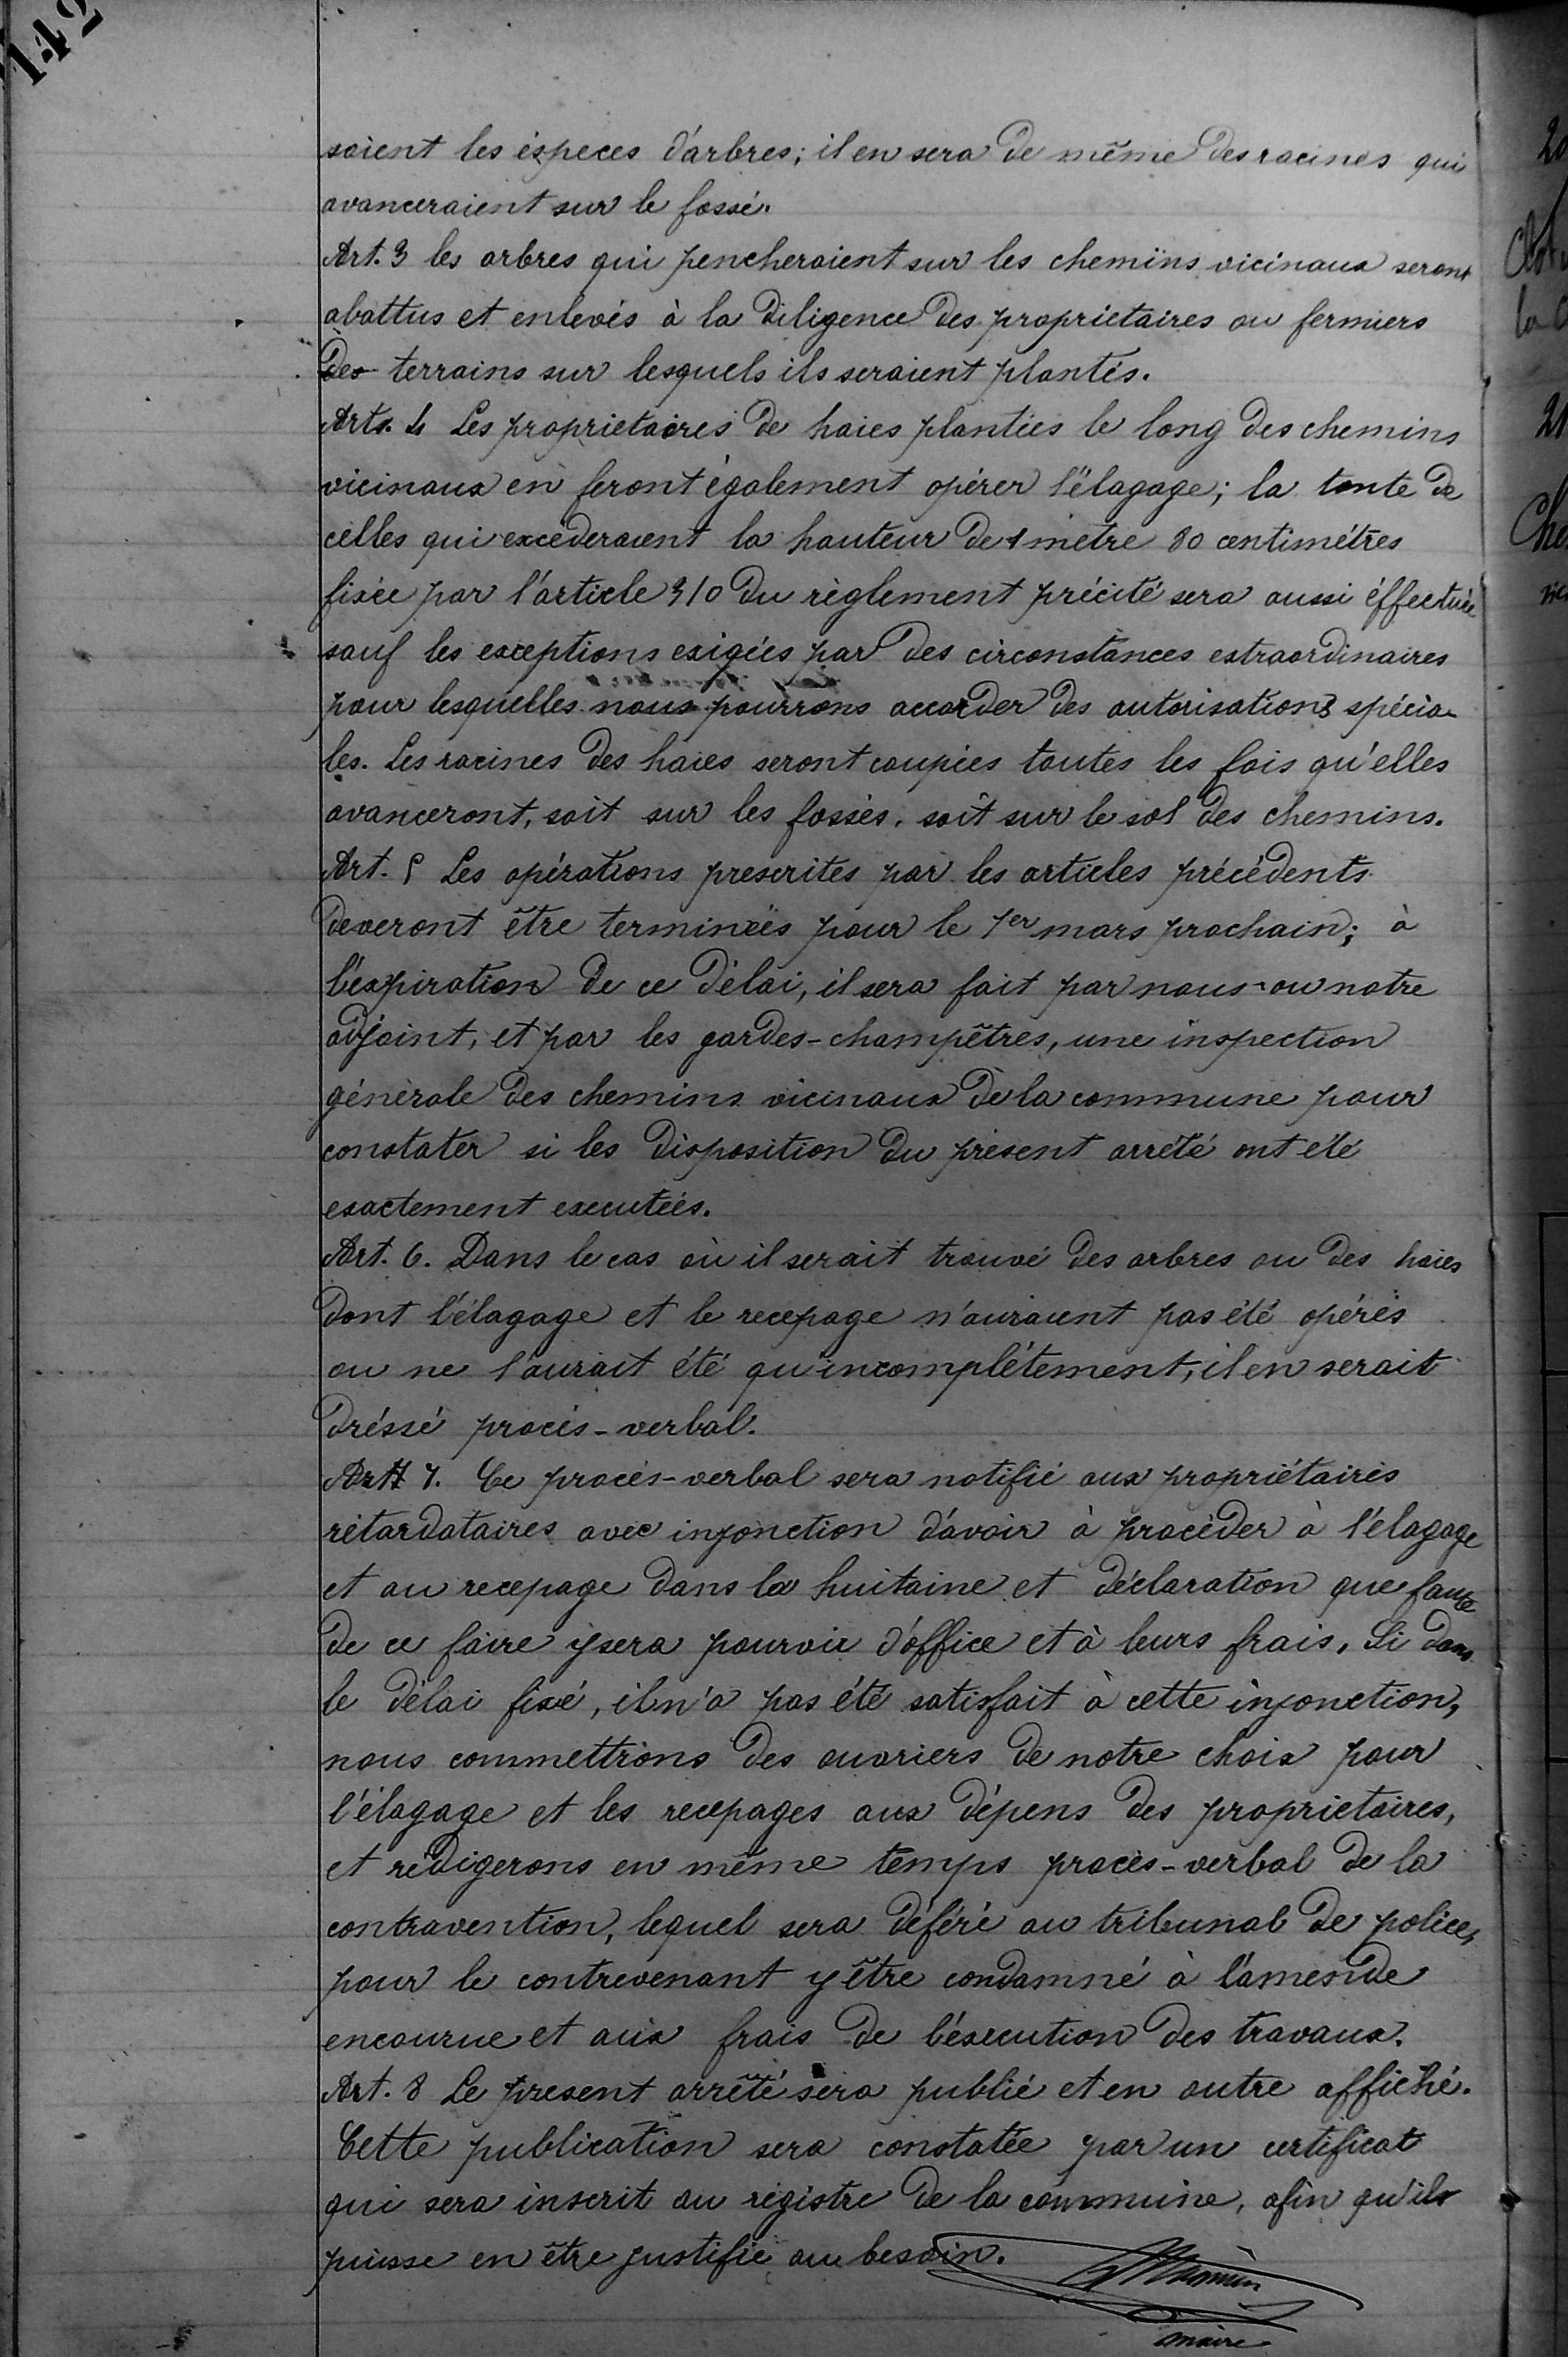 142
soient les éspeces d'arbres; il en sera de même des racines qui
avanceraient sur le fossé.
Art. 3 les arbres qui pencheraient sur les chemins vicinaux seront
abattus et enlevés à la diligence des propriétaires ou fermiers
des terrains sur lesquels ils seraient plantés.
Arts. 4 Les proprietaires de haies plantées le long des chemins
vicinaux en feront également opérer l'élagage; la tonte de
celles qui excéderaient la hauteur de 1 mètre 80 centimétres
fixée par l'article 310 du règlement précité sera aussi éffectuée
sauf les exceptions exigées par des circonstances extraordinaires
pour lesquelles nous pourrons accorder des autorisations spécia-
les. Les racines des haies seront coupées toutes les fois qu'elles
avanceront, soit sur les fossés, soit sur le sol des chemins.
Art. 5 Les opérations prescrites par les articles précédents
deveront être terminées pour le 1er mars prochain; à
l'éxpiration de ce délai, il sera fait par nous ou notre
adjoint, et par les gardes-champêtres, une inspection
générale des chemins vicinaux de la commune pour
constater si les disposition du présent arrêté ont été
exactement executées.
Art. 6. Dans le cas où il serait trouvé des arbres ou des haies
dont l'élagage et le recepage n'auraient pas été opérés
ou ne l'aurait été qu'incomplétement, il en serait
dréssé procés-verbal.
Artt 7. Ce procés-verbal sera notifié aux propriétaires
rétardataires avec injonction d'avoir à procéder à l'élagage
et au recepage dans la huitaine et déclaration que faute
de ce faire y sera pourvu d'office et à leurs frais. Si dans
le délai fixé, il n'a pas été satisfait à cette injonction,
nous commettrons des ouvriers de notre choix pour
l'élagage et les recepages aux dépens des proprietaires,
et rédigerons en même temps procès-verbal de la
contravention, lequel sera déféré au tribunal de police,
pour le contrevenant y être condamné à l'amende
encourue et aux frais de l'éxecution des travaux.
Art. 8 Le présent arrêté sera publié et en outre affiché.
Cette publication sera constatée par un certificat
qui sera inscrit au régistre de la commune, afin qu'il
puisse en être justifié au besoin.
maire